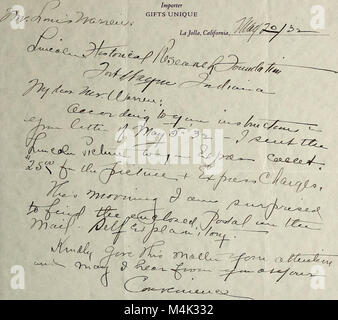 Importer
GIFTS UNIQUE
La Jolla, California, May 20/32
Mr. Louis Warren.
Lincoln Historical Research Foundation
Fort Wayne Indiana
My dear Mr Warren:
According to your instructions in
your letter of May 5-32 - I sent the
Lincoln Picture by Express collect.
$25.00 for the picture & Express Charges.
This morning I am surprised
to find the enclosed Postal in the
Mail. Self Explanitory.
Kindly give this matter your attention
and may I hear from you at your
Convenience
alamy
Image ID: M4K332
www.alamy.com